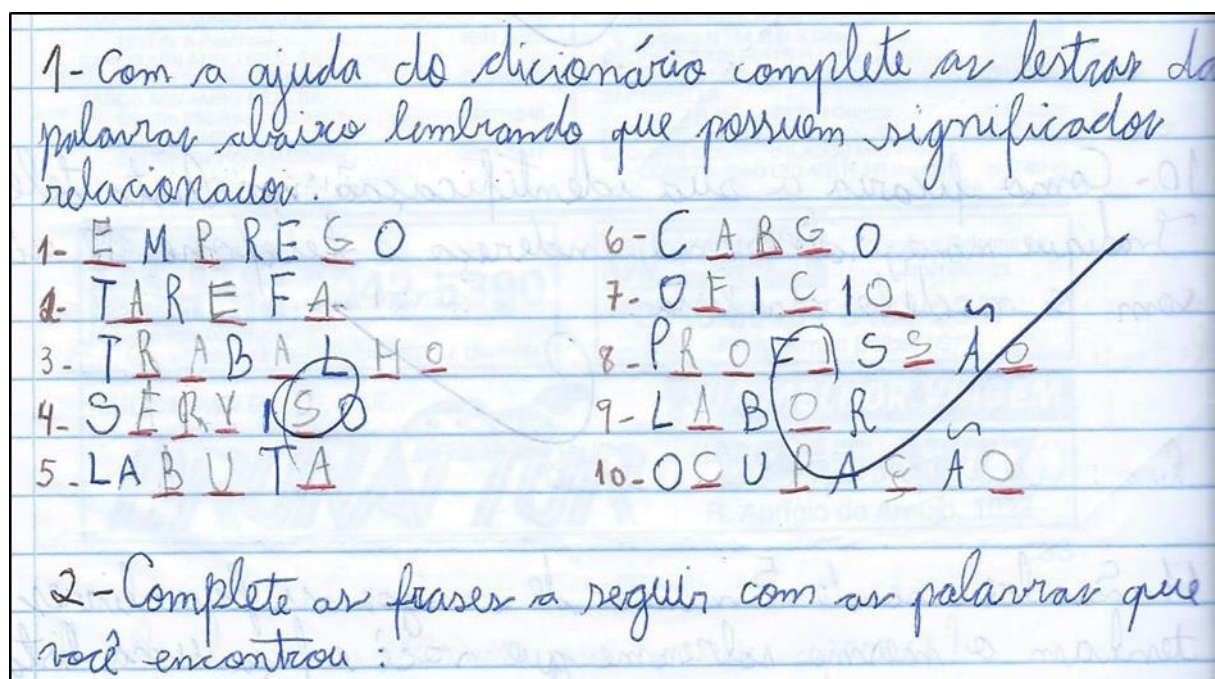 1- Com a ajuda do dicionário complete as lestras da
palavras abaixo lembrando que possuem significados
relacionados.
1- E M P R E G O
2- T A R E F A
3- T R A B A L H O
4- S E R V I S O
5- L A B U T A
6- C A R G O
7- O F I C I O
8- P R O F I S S Ã O
9- L A B O R
10- O C U P A Ç Ã O
2- Complete as frases a seguir com as palavras que
você encontrou: